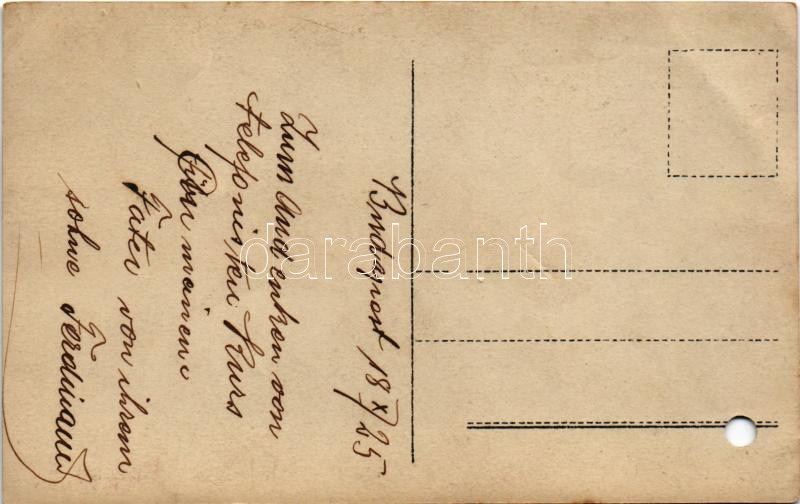 Budapest 18 X/25
Zum Andenken von
telefonisten Kurs
für meinen
Fater von ihrem
sohne Ferdinand
darabanth